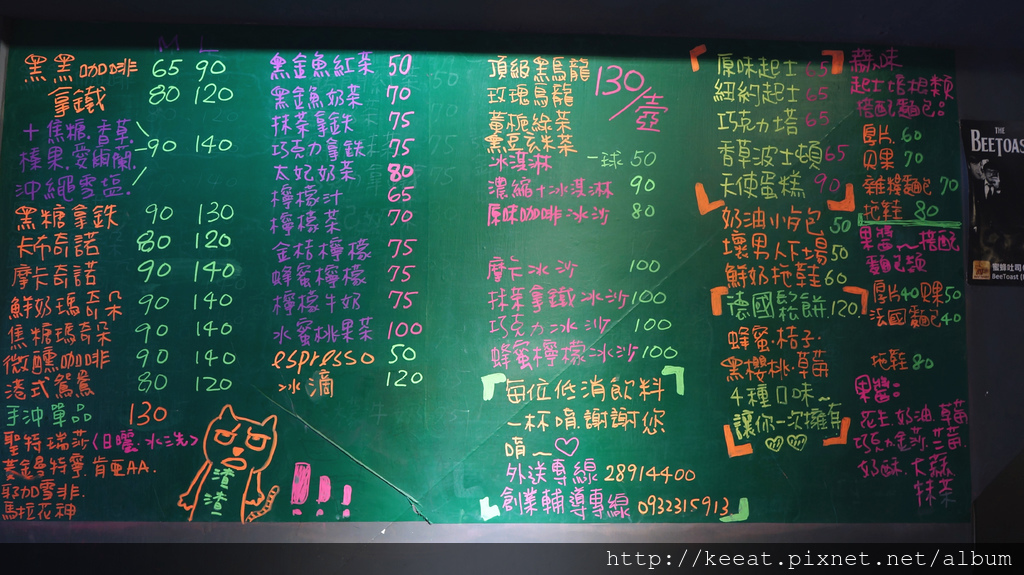 M L
黑黑咖啡 65 90
拿鐵 80 120
+焦糖.香草.
榛果.愛爾蘭. 90 140
沖繩雪塩.
黑糖拿鐵 90 130
卡布奇諾 80 120
摩卡奇諾 90 140
鮮奶瑪奇朵 90 140
焦糖瑪奇朵 90 140
微醺咖啡 90 140
港式鴛鴦 80 120
手沖單品 130
聖特瑞莎(日曬.水洗)
黃金曼特寧.肯亞AA.
耶加雪非.
馬拉花神
渣渣
黑金魚紅茶 50
黑金魚奶茶 70
抹茶拿鐵 75
巧克力拿鐵 75
太妃奶茶 80
檸檬汁 65
檸檬茶 70
金桔檸檬 75
蜂蜜檸檬 75
檸檬牛奶 75
水蜜桃果茶 100
espresso 50
冰滴 120
頂級黑烏龍
玫瑰烏龍
黃梔綠茶
黑豆玄米茶
130/壺
冰淇淋 一球 50
濃縮+冰淇淋 90
原味咖啡冰沙 80
摩卡冰沙 100
抹茶拿鐵冰沙 100
巧克力冰沙 100
蜂蜜檸檬冰沙 100
每位低消飲料
一杯唷.謝謝您
唷~♡
外送專線 28914400
創業輔導專線 0932315913
原味起士 65
紐約起士 65
巧克力塔 65
香草波士頓 65
天使蛋糕 90
奶油小肉包 50
壞男人下場 50
鮮奶拖鞋 60
德國鬆餅 120
蜂蜜.桔子.
黑櫻桃.草莓
4種口味~
讓你一次擁有
♡♡
蒜味
起士培根類
搭配麵包:
厚片 60
貝果 70
雜糧麵包 70
拖鞋 80
果醬~搭配
麵包類
厚片40 貝果50
法國麵包40
拖鞋 80
果醬:
花生.奶油.草莓
巧克.金莎.蘭莓.
奶酥.大蒜
抹茶
THE
BEETOAST
蜜蜂吐司
BeeToast
http://keeat.pixnet.net/album